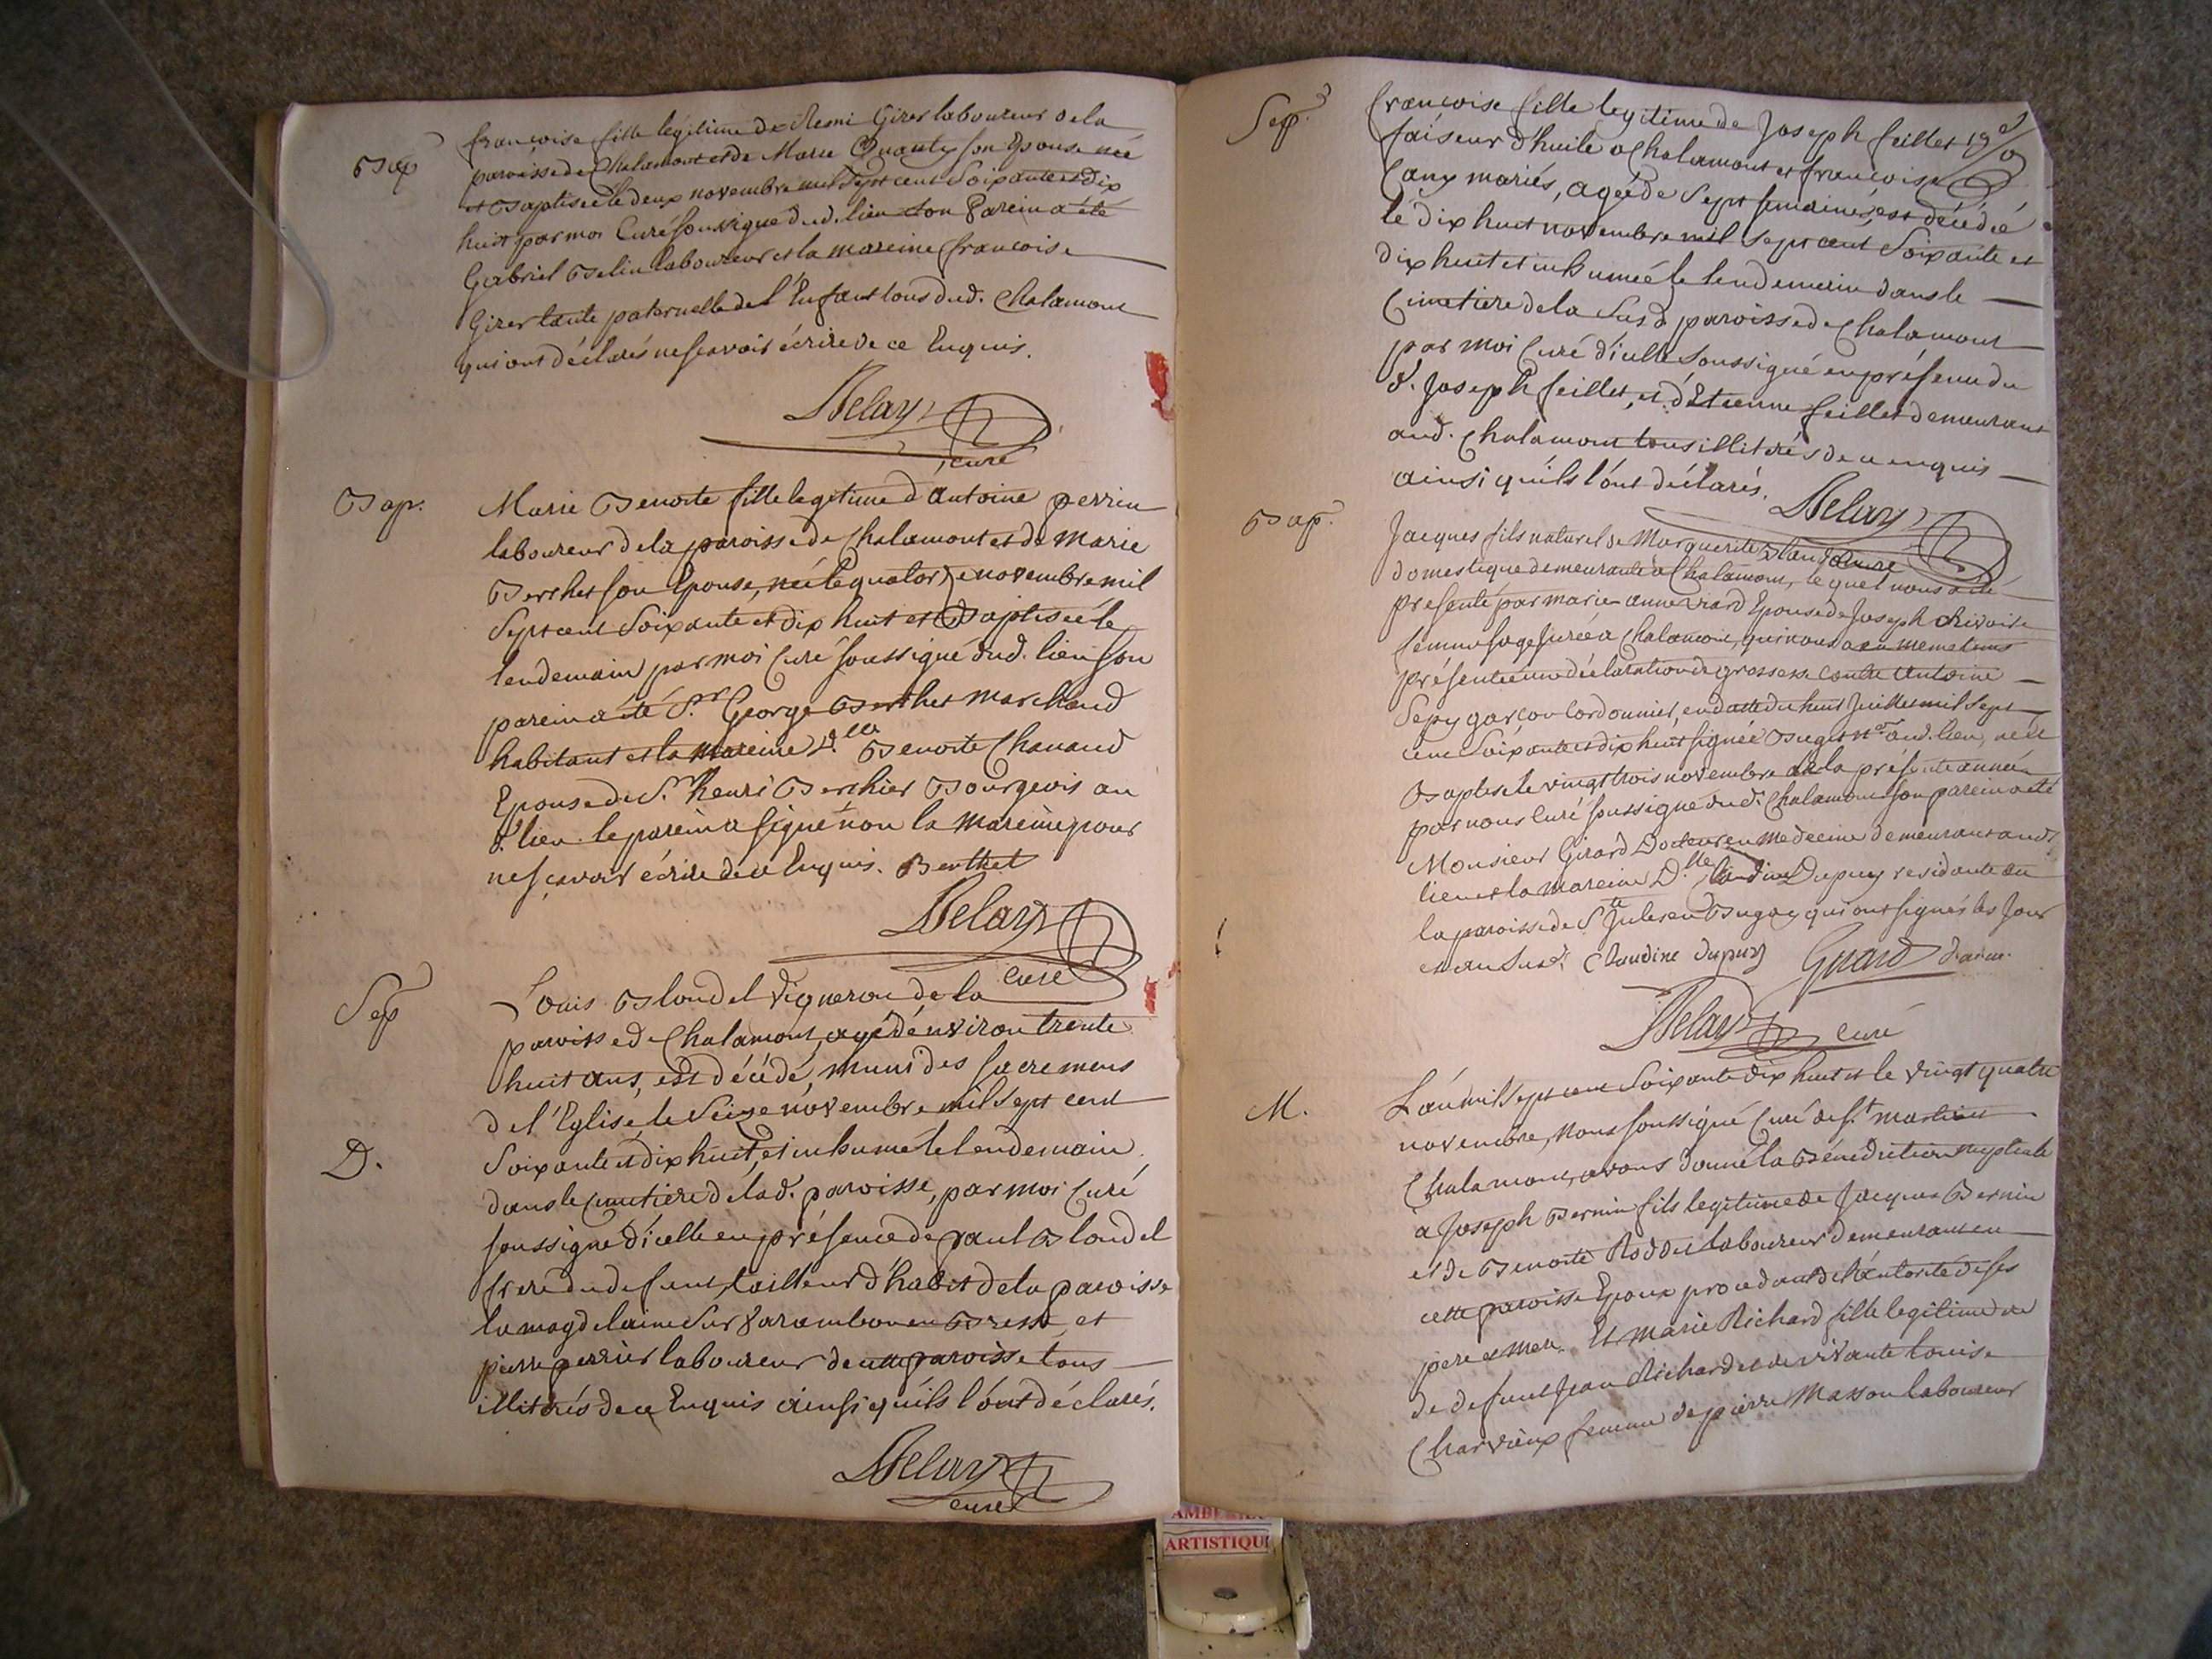 Bap
françoise fille légitime de Remi Girer laboureur de la
paroisse de Chalamont et de Marie son Epouse née
et Baptisée le deux novembre mil Sept cent Soixante et dix
huit par moi Curé soussigné dud. lieu son Parein a été
Gabriel Belin laboureur et la mareine françoise
Girer tante paternelle de l'Enfant tous dud. Chalamont
qui ont déclarés ne scavoir écrire de ce Enquis.
Delay
curé
Bap.
Marie Benoite fille legitime d'Antoine perrin
laboureur de la paroisse de Chalamont et de Marie
Berthet son Epouse, née le quatorze novembre mil
Sept cent Soixante et dix huit et Baptisée le
lendemain par moi Curé soussigné dud. lieu son
parein a été S.r George Berthet marchand
habitant et la mareine D.lle Benoite Chanand
Epouse de S.r henri Berthier Bourgeois au
d. lieu. le parein a signé non la mareine pour
ne sçavoir écrire de ce Enquis. Berthet
Delay
Curé
Sep
Louis Blondel vigneron de la
paroisse de Chalamont, agé d'environ trente
huit ans, est décédé, muni des sacremens
de l'Eglise, le Seize novembre mil Sept cent
D.
Soixante et dix huit, et inhumé le lendemain
dans le Cimetiere de lad. paroisse, par moi Curé
soussigné d'icelle en présence de paul Blondel
frere du defunt, tailleur d'habit de la paroisse
la magdelaine Sur Varambon en Bresse, et
pierre perrier laboureur de cette paroisse tous
illitérés de ce Enquis ainsi qu'ils l'ont déclarés.
Delay
curé
Sep.
françoise fille legitime de Joseph feillet 19e
faiseur d'huile a Chalamont et françoise
Cany mariés, agée de Sept semaines, est décédée
le dix huit novembre mil Sept cent Soixante et
dix huit et inhumée le lendemain dans le
Cimetiere de la Susd. paroisse de Chalamont
par moi Curé d'icelle soussigné en présence du
d. Joseph feillet, et d'Etienne feillet demeurant
aud. Chalamont tous illitérés de ce enquis
ainsi qu'ils l'ont déclarés.
Delay
curé
Bap.
Jacques fils naturel de Marguerite
domestique demeurante a Chalamont, lequel nous a été
présenté par marie anne viard Epouse de Joseph
femme sage jurée a Chalamont, qui nous a en meme tems
présenté une déclaration de grossesse contre Antoine
Sepy garçon Cordonnier, en datte du huit Juillet mil Sept
cent Soixante et dix huit signée Buget n.re aud. lieu, né et
Baptisé le vingt trois novembre de la présente année
par nous Curé soussigné dud. Chalamont son parein a été
Monsieur Girard Docteur en Medecine demeurant aud.
lieu et la mareine D.lle Claudine Dupuy residante en
la paroisse de S.te Julie en Bugey qui ont signés les Jour
et an Susd. Claudine dupuy Girard d.m.
Delay curé
M.
L'an mil Sept cent Soixante dix huit et le vingt quatre
novembre, nous soussigné Curé de S.t martin
Chalamont, avons donné la Bénediction nuptiale
a Joseph Bernin fils legitime de Jacques Bernin
et de Benoite Roddet laboureur demeurant en
cette paroisse Epoux procedant de l'autorité de ses
pere et mere. Et Marie Richard fille legitime de
de defunt Jean Richard et de vivante Louise
Charvieux femme de pierre Masson laboureur
AMBERIEU
ARTISTIQU